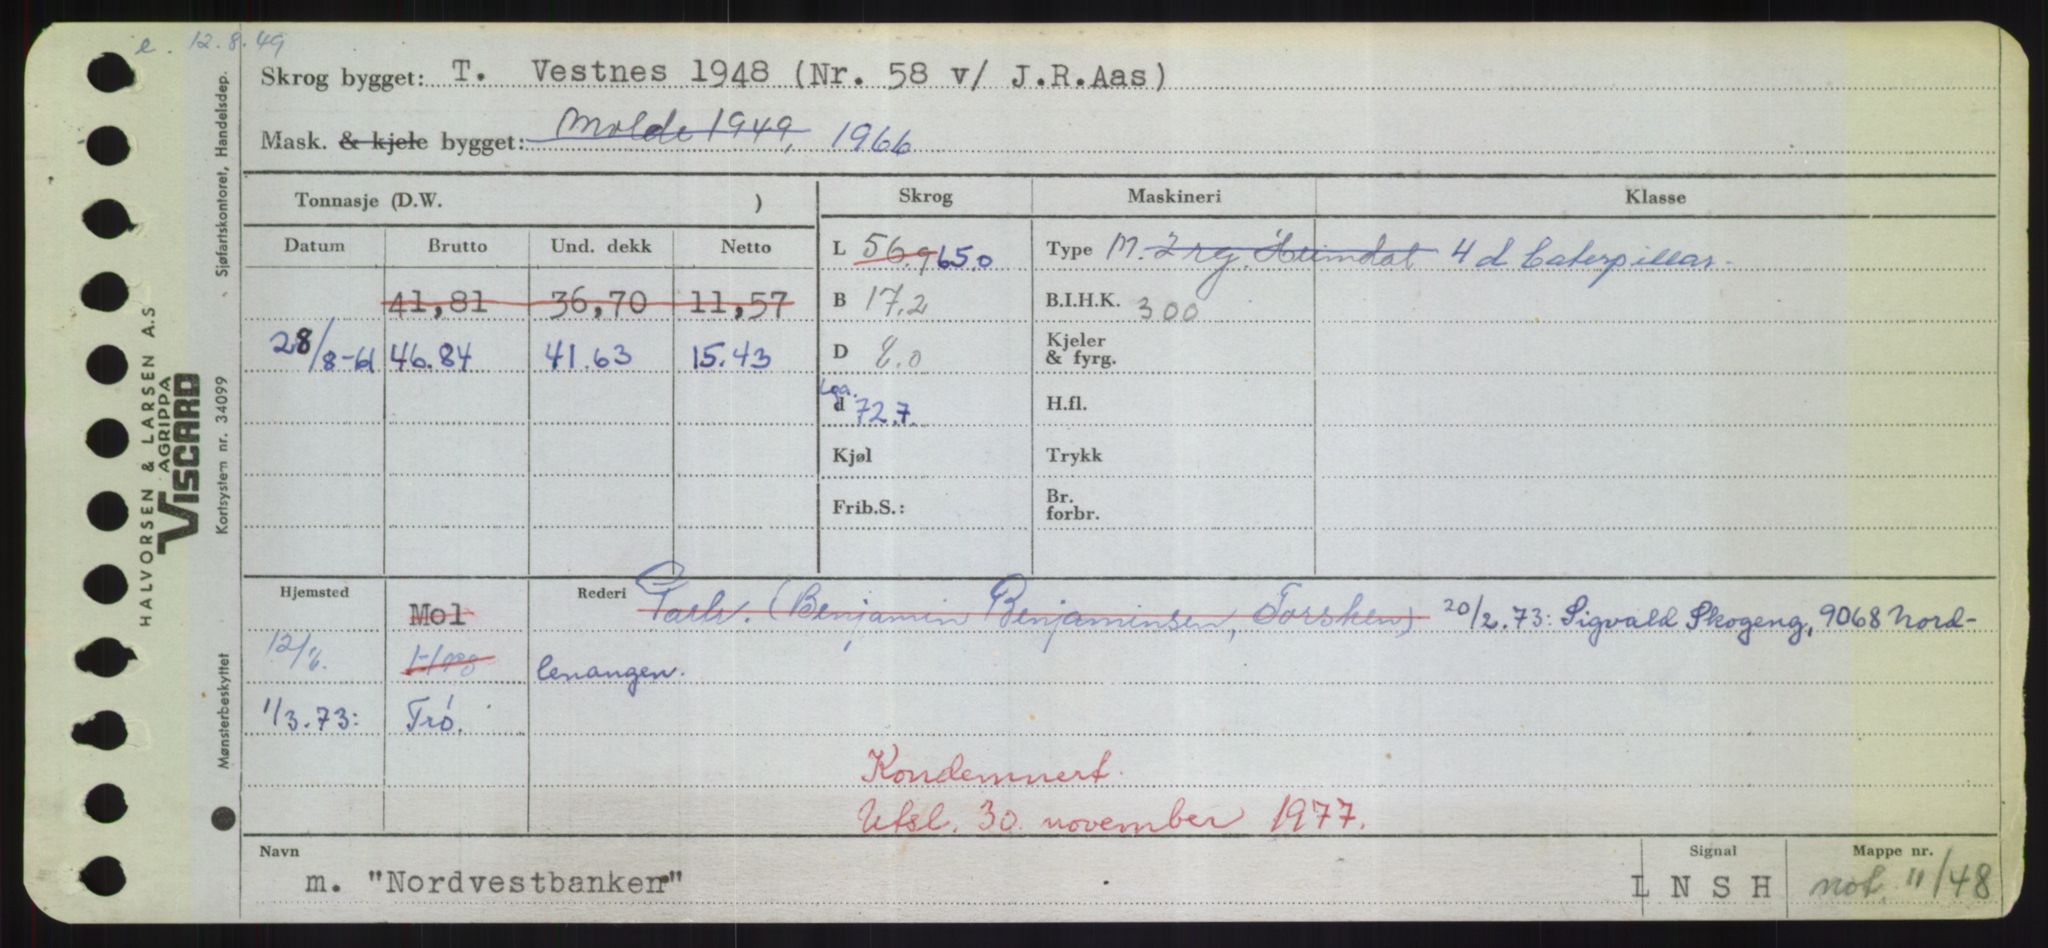 e. 12.8.49
Skrog bygget: T. Vestnes 1948 (Nr. 58 v/ J.R.Aas)
Mask. & kjele bygget: Molde 1949, 1966
Tonnasje (D.W. )
Skrog
Maskineri
Klasse
Datum Brutto Und. dekk Netto
41,81 36,70 11,57
28/8-61 46.84 41.63 15.43
L 56.9 65.0
B 17.2
D 8.0
Loa.
d 72.7.
Kjøl
Frib.S.:
Type M. 2 rg. Heimdal 4 d Caterpillar.
B.I.H.K. 300
Kjeler
& fyrg.
H.fl.
Trykk
Br.
forbr.
Hjemsted Mol
Rederi Partr. (Benjamin Benjaminsen, Torsken) 20/2.73: Sigvald Skogeng, 9068 Nord-
lenangen.
1/3.73: Trø.
Kondemnert.
Utsl. 30. november 1977.
Navn
m. "Nordvestbanken"
Signal
L N S H
Mappe nr.
not. 11/48
Sjøfartskontoret, Handelsdep.
Kortsystem nr. 34099
Mønsterbeskyttet
HALVORSEN & LARSEN A.S
AGRIPPA
VISCARD